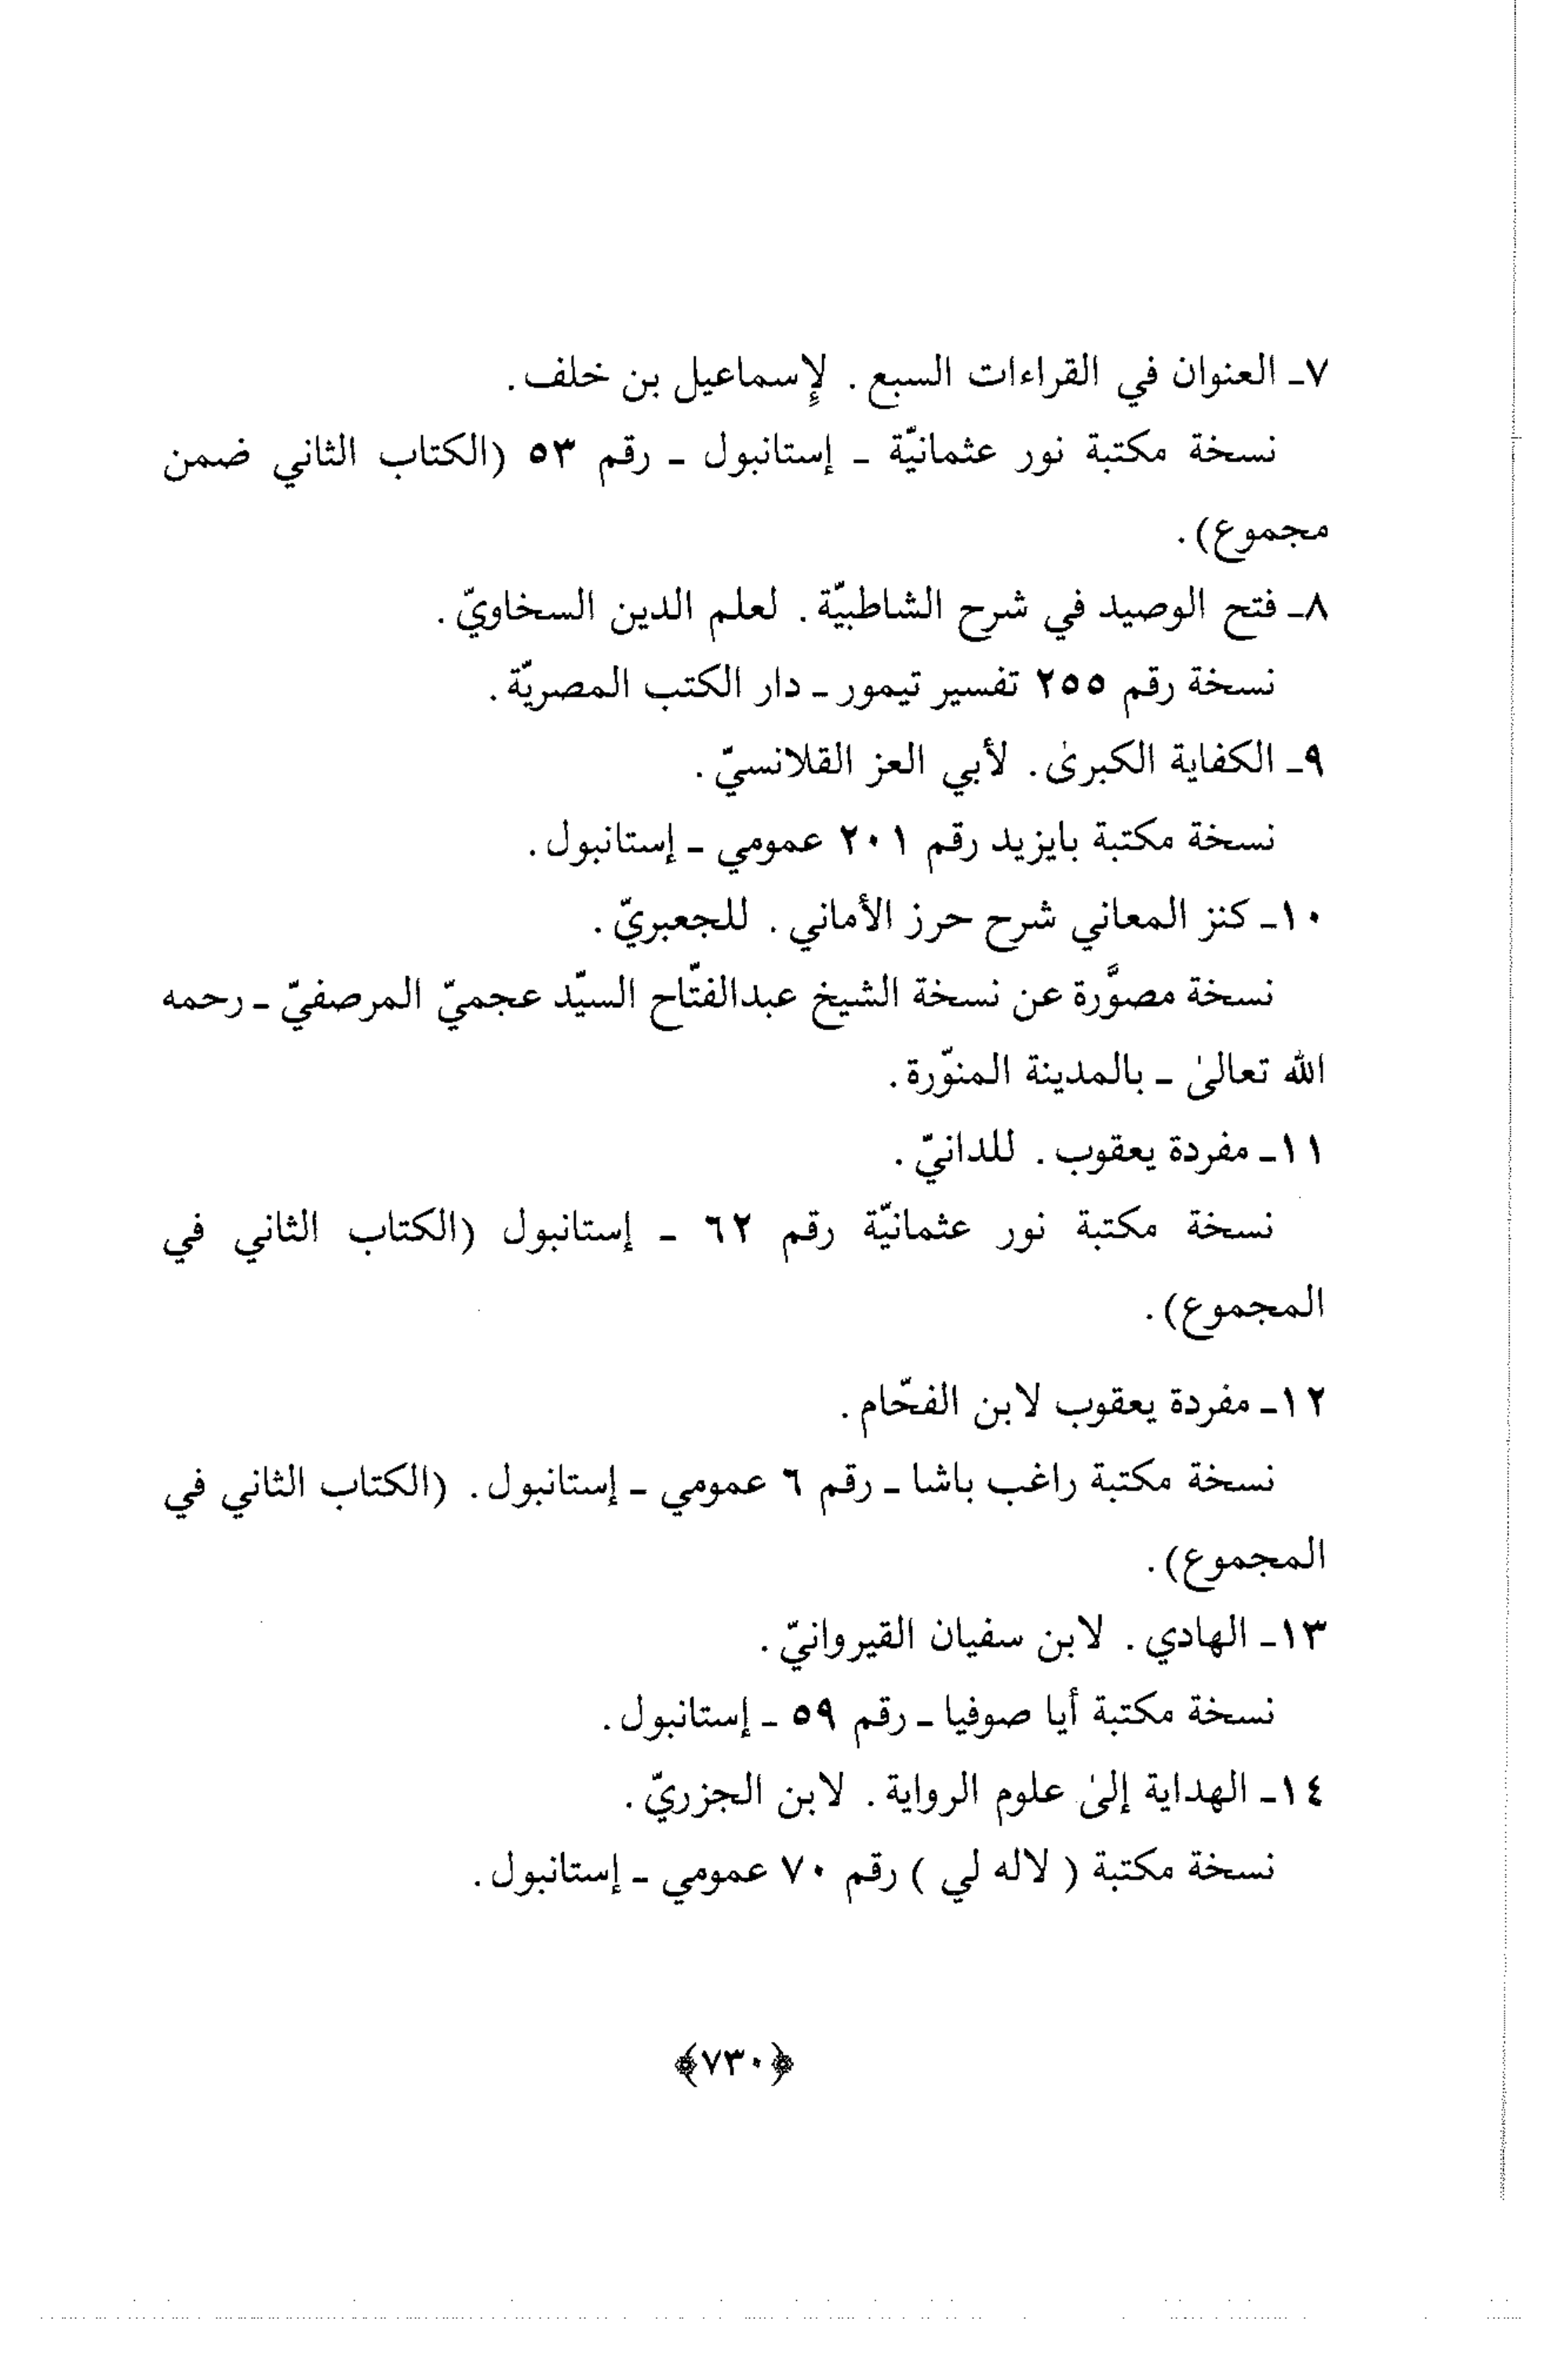 ٧ـ العنوان في القراءات السبع . لإسماعيل بن خلف.
نسخة مكتبة نور عثمانيّة ـ إستانبول ـ رقم ٥٣ (الكتاب الثاني ضمن
مجموع).
٨ـ فتح الوصيد في شرح الشاطبيّة. لعلم الدين السخاويّ.
نسخة رقم ٢٥٥ تفسير تيمور ـ دار الكتب المصريّة.
٩ـ الكفاية الكبرىٰ. لأبي العز القلانسيّ.
نسخة مكتبة بايزيد رقم ٢٠١ عمومي ـ إستانبول.
١٠ـ كنز المعاني شرح حرز الأماني. للجعبريّ.
نسخة مصوَّرة عن نسخة الشيخ عبدالفتّاح السيّد عجميّ المرصفيّ ـ رحمه
الله تعالىٰ ـ بالمدينة المنوّرة.
١١ـ مفردة يعقوب. للدانيّ.
نسخة مكتبة نور عثمانيّة رقم ٦٢ ـ إستانبول (الكتاب الثاني في
المجموع).
١٢ـ مفردة يعقوب لابن الفحّام.
نسخة مكتبة راغب باشا ـ رقم ٦ عمومي ـ إستانبول. (الكتاب الثاني في
المجموع).
١٣ـ الهادي. لابن سفيان القيروانيّ.
نسخة مكتبة أيا صوفيا ـ رقم ٥٩ ـ إستانبول.
١٤ـ الهداية إلىٰ علوم الرواية. لابن الجزريّ.
نسخة مكتبة ( لاله لي ) رقم ٧٠ عمومي ـ إستانبول.
﴿٧٣٠﴾